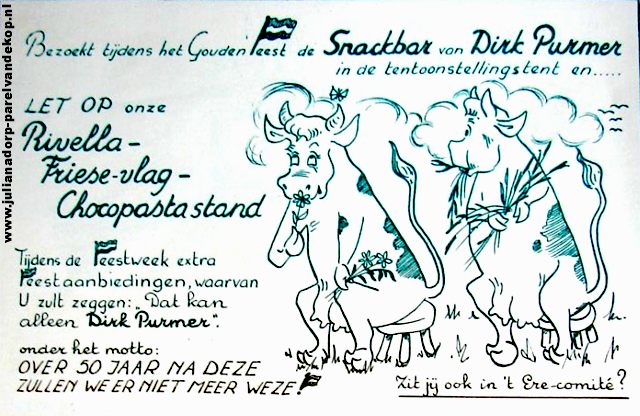 Bezoekt tijdens het Gouden Feest de Snackbar van Dirk Purmer
in de tentoonstellingstent en.....
LET OP onze
Rivella-
Friese-vlag-
Chocopastastand
Tijdens de Feestweek extra
Feestaanbiedingen, waarvan
U zult zeggen: „Dat kan
alleen Dirk Purmer".
onder het motto:
OVER 50 JAAR NA DEZE
ZULLEN WE ER NIET MEER WEZE!
Zit jij ook in 't Ere-comité?
www.julianadorp-parelvandekop.nl